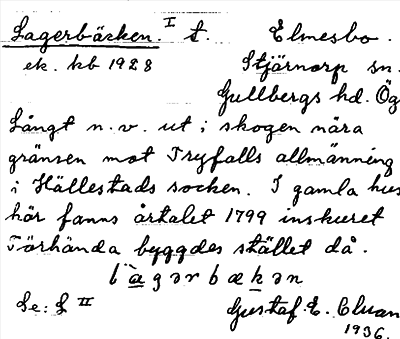 Lagerbäcken. I t. Elmesbo.
ek. kb 1928 Stjärnorp sn.
Gullbergs hd. Ög
Långt n.v. ut i skogen nära
gränsen mot Tryfalls allmänning
i Hällestads socken. I gamla hus
här fanns årtalet 1799 inskuret
Törhända byggdes stället då.
Se: L II Gustaf E. Cluan
1936.